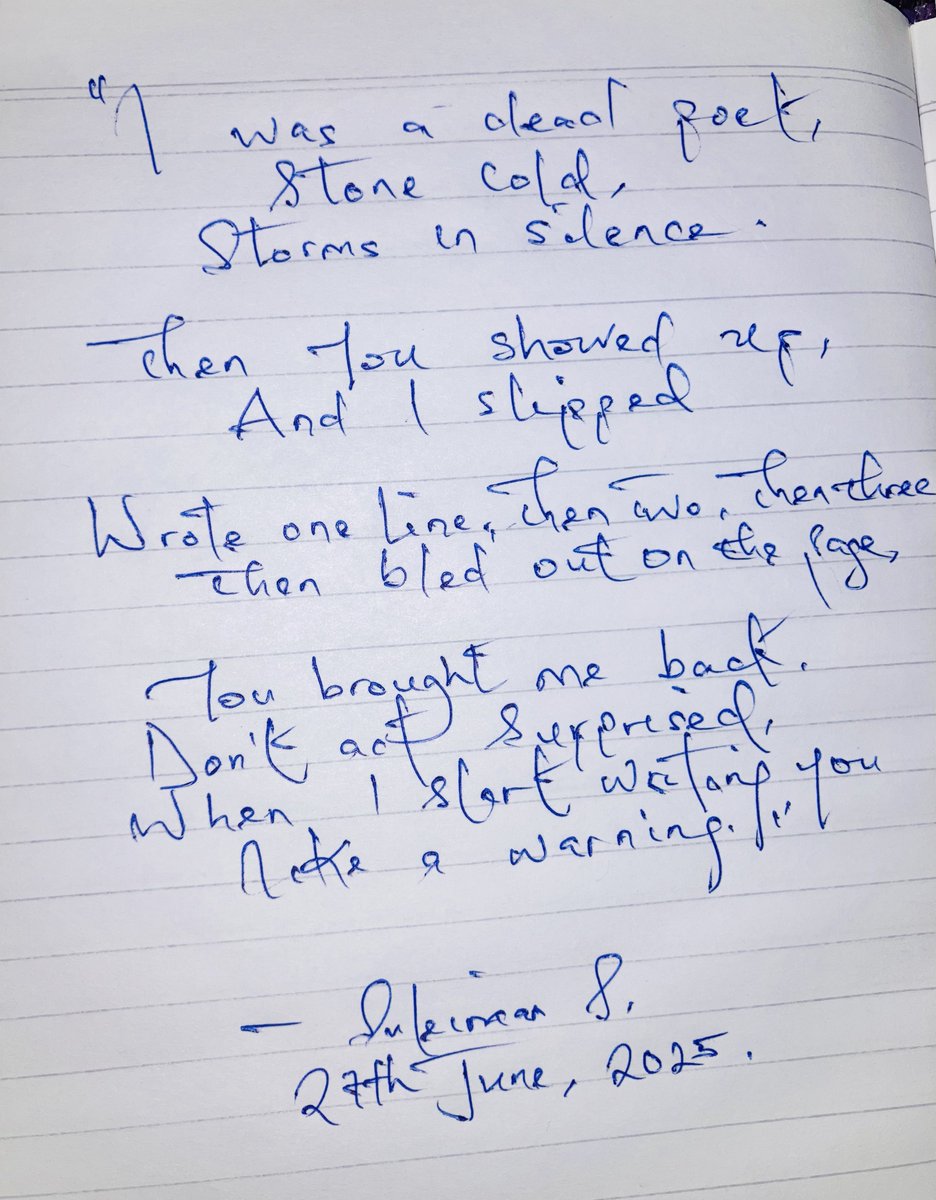 "I was a dead poet,
Stone cold,
Storms in silence.
Then you showed up,
And I slipped
Wrote one line, then two, then three
then bled out on the page,
You brought me back.
Don't act surprised,
When I start writing you
like a warning."
— Suleiman S.
27th June, 2025.